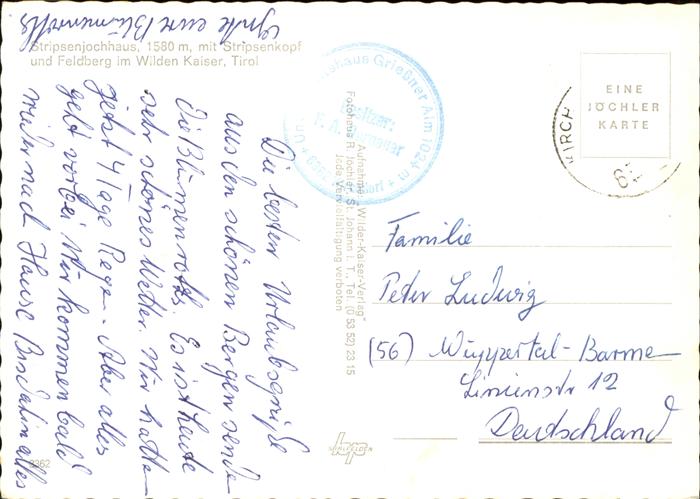 Stripsenjochhaus, 1580 m, mit Stripsenkopf
und Feldberg im Wilden Kaiser, Tirol
Die besten Urlaubsgrüße
aus den schönen Bergen sende
Die Blumenrolls. Es ist heute
sehr schönes Wetter. Wir hatten
jetzt 4 Tage Regen. Aber alles
geht vorbei. Wir kommen bald
wieder nach Hause. Bis dahin alles
Gute eure Blumenrolls
Griesner Alm 1024 m
Besitzer:
Aufnahme: "Wilder-Kaiser-Verlag"
Fotohaus R. Jöchler, St. Johann i. T., Tel. (0 53 52) 23 15
Jede Vervielfältigung verboten
EINE
JÖCHLER
KARTE
KIRCH
Familie
Peter Ludwig
(56) Wuppertal-Barmen
Linienstr 12
Deutschland